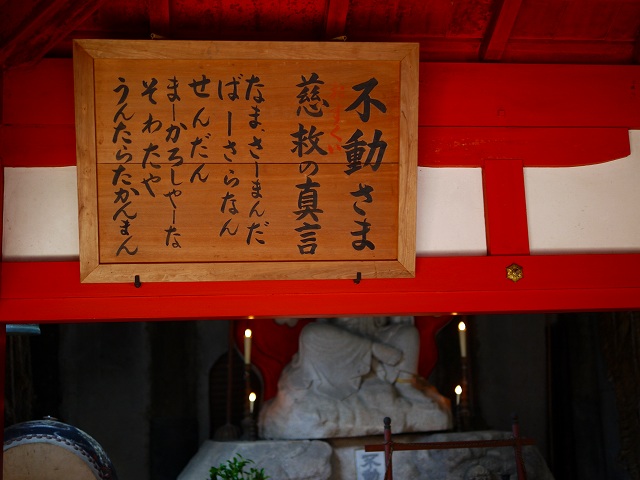 不動さま
慈救の真言
なまさーまんだ
ばーさらなん
せんだん
まーかろしやーな
そわたや
うんたらたかんまん
不動